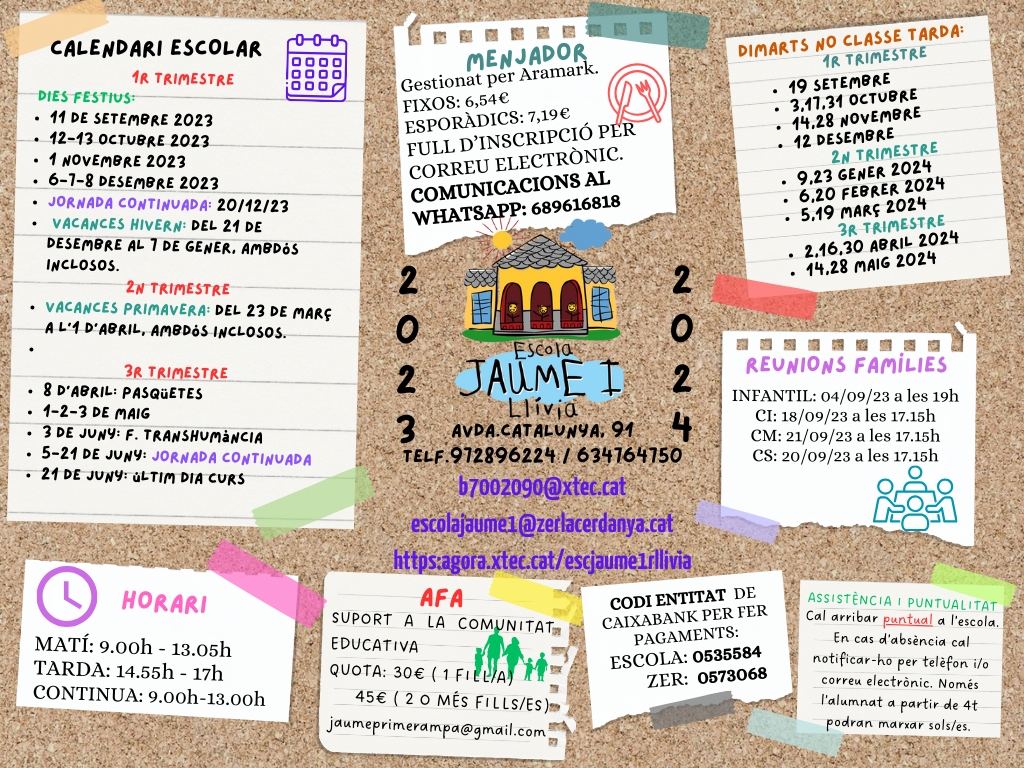 CALENDARI ESCOLAR
1R TRIMESTRE
DIES FESTIUS:
• 11 DE SETEMBRE 2023
• 12-13 OCTUBRE 2023
• 1 NOVEMBRE 2023
• 6-7-8 DESEMBRE 2023
• JORNADA CONTINUADA: 20/12/23
• VACANCES HIVERN: DEL 21 DE
DESEMBRE AL 7 DE GENER, AMBDóS
INCLOSOS.
2N TRIMESTRE
• VACANCES PRIMAVERA: DEL 23 DE MARÇ
A L'1 D'ABRIL, AMBDóS INCLOSOS.
•
3R TRIMESTRE
• 8 D'ABRIL: PASQüETES
• 1-2-3 DE MAIG
• 3 DE JUNY: F. TRANSHUMàNCIA
• 5-21 DE JUNY: JORNADA CONTINUADA
• 21 DE JUNY: úLTIM DIA CURS
MENJADOR
Gestionat per Aramark.
FIXOS: 6,54€
ESPORÀDICS: 7,19€
FULL D'INSCRIPCIÓ PER
CORREU ELECTRÒNIC.
COMUNICACIONS AL
WHATSAPP: 689616818
DIMARTS NO CLASSE TARDA:
1R TRIMESTRE
• 19 SETEMBRE
• 3,17,31 OCTUBRE
• 14,28 NOVEMBRE
• 12 DESEMBRE
2N TRIMESTRE
• 9,23 GENER 2024
• 6,20 FEBRER 2024
• 5,19 MARÇ 2024
3R TRIMESTRE
• 2,16,30 ABRIL 2024
• 14,28 MAIG 2024
2
0
2
3
Escola
JAUME I
Llívia
2
0
2
4
AVDA.CATALUNYA, 91
TELF.972896224 / 634764750
b7002090@xtec.cat
escolajaume1@zerlacerdanya.cat
https:agora.xtec.cat/escjaume1rllivia
REUNIONS FAMÍLIES
INFANTIL: 04/09/23 a les 19h
CI: 18/09/23 a les 17.15h
CM: 21/09/23 a les 17.15h
CS: 20/09/23 a les 17.15h
HORARI
MATÍ: 9.00h - 13.05h
TARDA: 14.55h - 17h
CONTINUA: 9.00h-13.00h
AFA
SUPORT A LA COMUNITAT
EDUCATIVA
QUOTA: 30€ ( 1 FILL/A)
45€ ( 2 O MÉS FILLS/ES)
jaumeprimerampa@gmail.com
CODI ENTITAT DE
CAIXABANK PER FER
PAGAMENTS:
ESCOLA: 0535584
ZER: 0573068
ASSISTÈNCIA I PUNTUALITAT
Cal arribar puntual a l'escola.
En cas d'absència cal
notificar-ho per telèfon i/o
correu electrònic. Només
l'alumnat a partir de 4t
podran marxar sols/es.